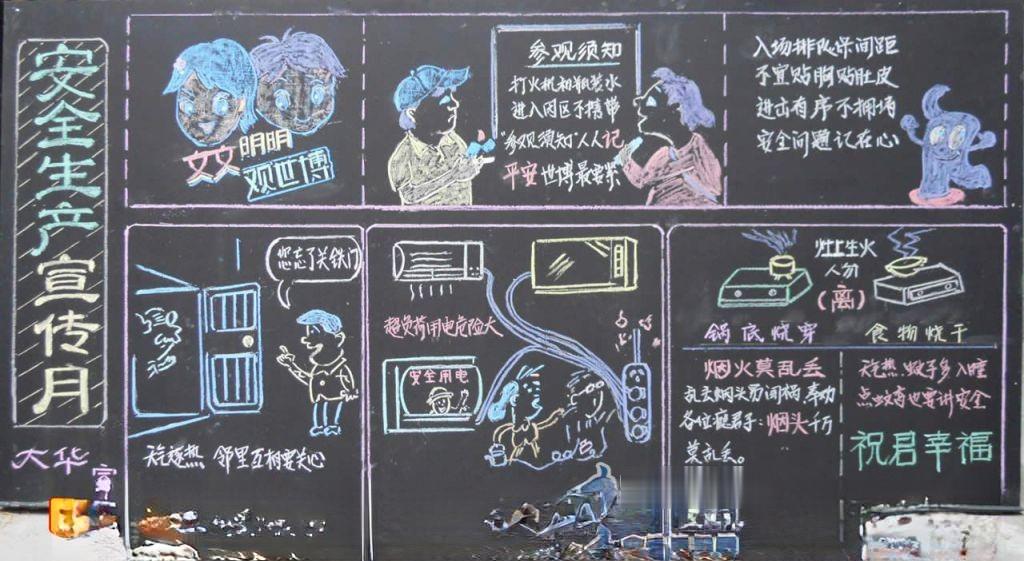 安全生产宣传月
大华
文文
明明
观世博
参观须知
打火机和瓶装水
进入园区不携带
"参观须知"人人记
平安世博最要紧
入场排队保间距
不宜贴胸贴肚皮
进出有序不拥堵
安全问题记在心
您忘了关铁门
天气热 邻里互相要关心
超负荷用电危险大
安全用电
灶上生火
人勿
(离)
锅底烧穿
食物烧干
烟火莫乱丢
乱丢烟头易闯祸 奉劝
各位瘾君子:烟头千斤
莫乱丢。
天气热 蚊子多 入睡
点蚊香也要讲安全
祝君幸福